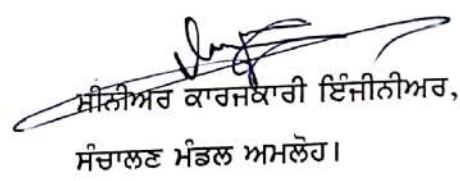 ਸੀਨੀਅਰ ਕਾਰਜਕਾਰੀ ਇੰਜੀਨੀਅਰ,
ਸੰਚਾਲਣ ਮੰਡਲ ਅਮਲੋਹ।